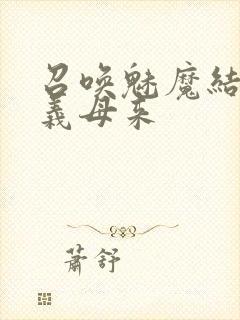 召唤魅魔結
義母来
萧舒